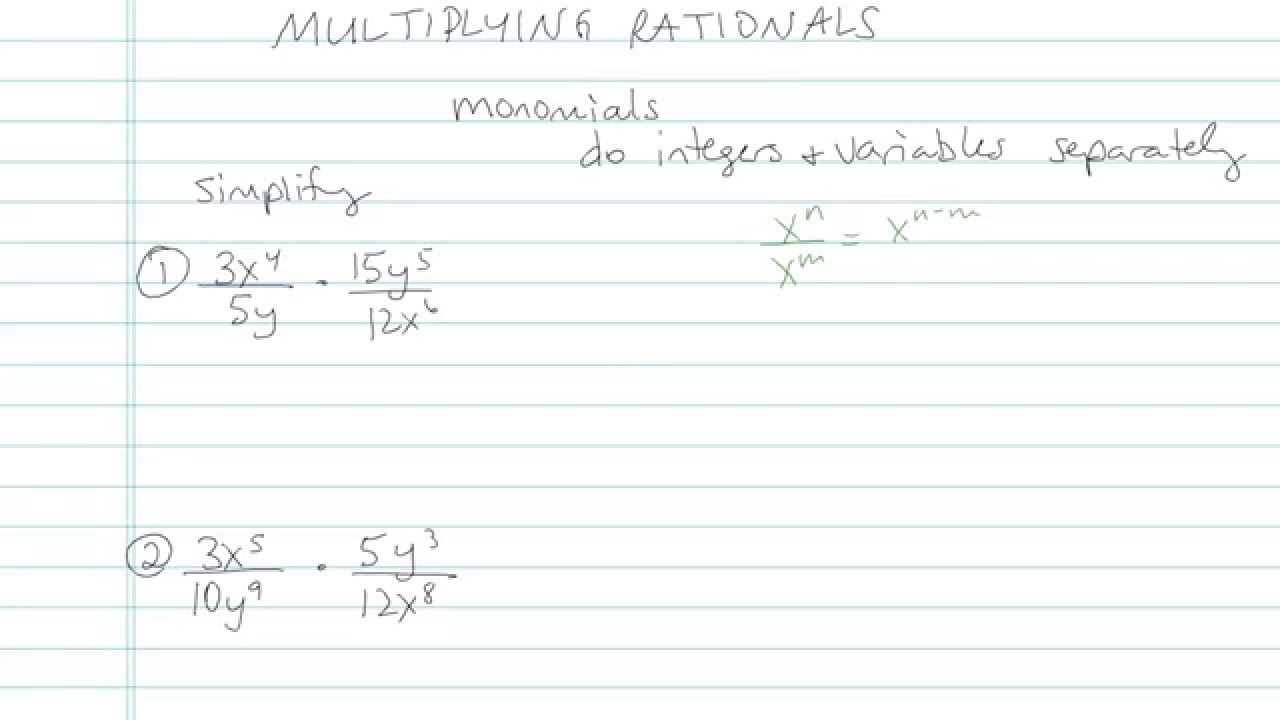 MULTIPLYING RATIONALS
monomials
do integers + variables separately
simplify
xⁿ/xᵐ = xⁿ⁻ᵐ
① 3x⁴/5y · 15y⁵/12x⁶
② 3x⁵/10y⁹ · 5y³/12x⁸